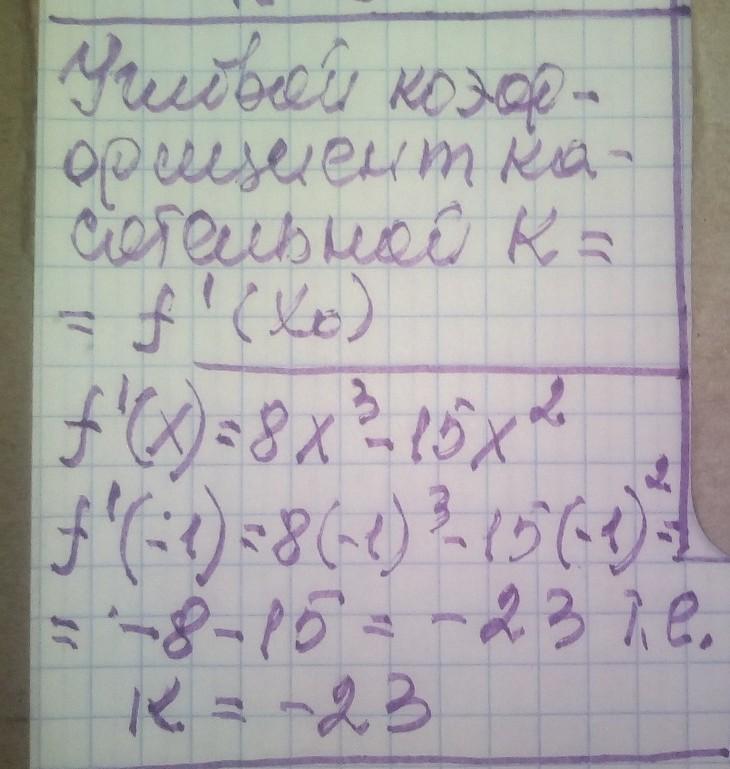 Угловой коэф-
фициент ка-
сательной K =
= f'(x₀)
f'(x) = 8x³ - 15x²
f'(-1) = 8(-1)³ - 15(-1)² =
= -8 - 15 = -23 т.е.
K = -23